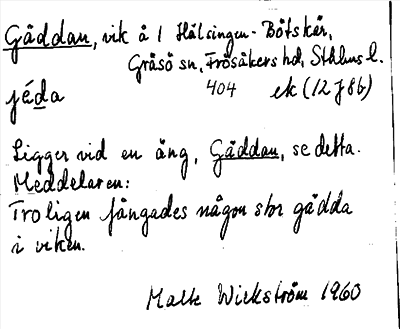 Gäddan, vik å 1 Hälsingen - Båtskär,
Gräsö sn, Frösåkers hd, Sthlms l.
404 ek (12 J 8b)
jéda
Ligger vid en äng, Gäddan, se detta.
Meddelaren:
Troligen fångades någon stor gädda
i viken.
Malte Wickström 1960